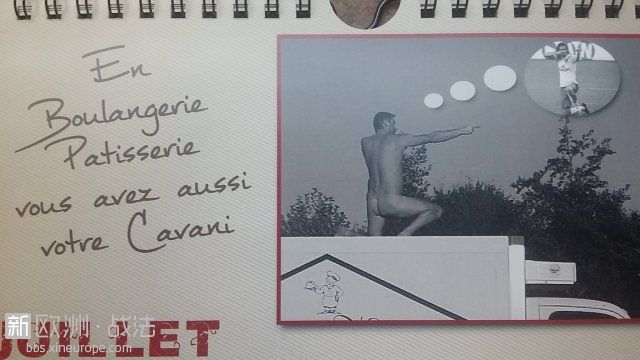 En
Boulangerie
Patisserie
vous avez aussi
votre Cavani
JUILLET
新欧洲·战法
bbs.xineurope.com